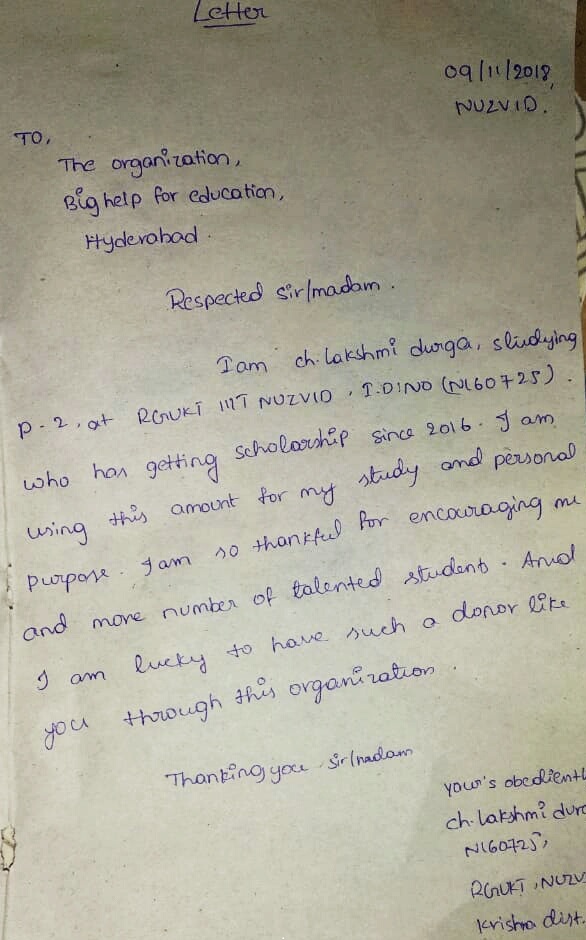 Letter
09/11/2018,
NUZVID.
TO,
The organization,
Big help for education,
Hyderabad.
Respected sir/madam.
I am ch. lakshmi durga, studying
P-2, at RGUKT IIIT NUZVID, I.D:NO (N160725).
who has getting scholarship since 2016. I am
using this amount for my study and personal
purpose. I am so thankful for encouraging me
and more number of talented student. And
I am lucky to have such a donor like
you through this organization.
Thanking you sir/madam
your's obedientl
ch. lakshmi dur
N160725,
RGUKT, NUZV
Krishna dist.